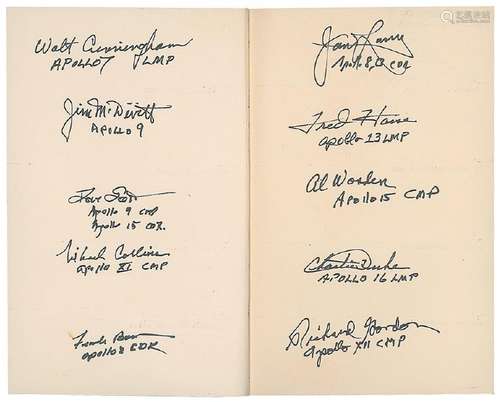 中国嘉德
Walt Cunningham
APOLLO 7 LMP
Jim McDivitt
APOLLO 9
Dave Scott
Apollo 9 CMP
Apollo 15 CDR.
Michael Collins
Apollo XI CMP
Frank Borman
Apollo 8 CDR
Jim Lovell
Apollo 8, 13 CDR
Fred Haise
Apollo 13 LMP
Al Worden
Apollo 15 CMP
Charlie Duke
APOLLO 16 LMP
Richard Gordon
Apollo XII CMP